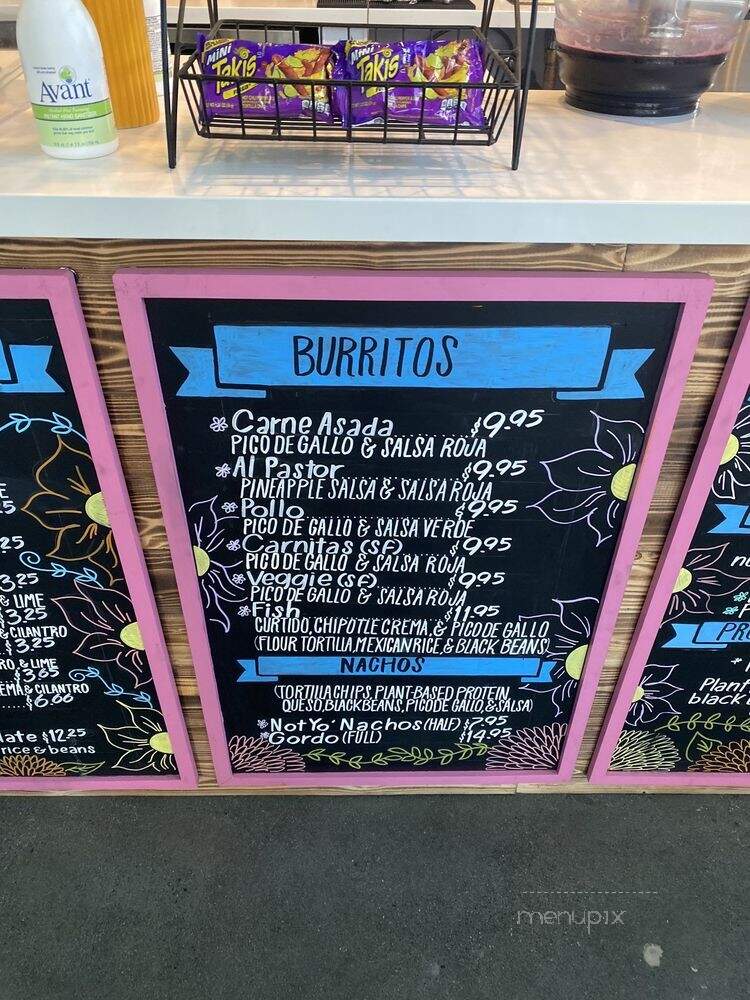 Avant
INSTANT HAND SANITIZER
MINI
Takis
MINI
Takis
BURRITOS
Carne Asada.......... $9.95
PICO DE GALLO & SALSA ROJA
Al Pastor.......... $9.95
PINEAPPLE SALSA & SALSA ROJA
Pollo.......... $9.95
PICO DE GALLO & SALSA VERDE
Carnitas (SF)....... $9.95
PICO DE GALLO & SALSA ROJA
Veggie (SF)....... $9.95
PICO DE GALLO & SALSA ROJA
Fish.......... $11.95
CURTIDO, CHIPOTLE CREMA, & PICO DE GALLO
(FLOUR TORTILLA, MEXICAN RICE, & BLACK BEANS)
NACHOS
(TORTILLA CHIPS, PLANT-BASED PROTEIN,
QUESO, BLACK BEANS, PICO DE GALLO, & SALSA)
Not Yo' Nachos (HALF) $7.95
Gordo (FULL) $14.95
.25
3.25
& LIME
$3.25
& CILANTRO
$3.25
RO, & LIME
$3.65
EMA & CILANTRO
$6.66
late $12.25
rice & beans
Plant
black
menupix